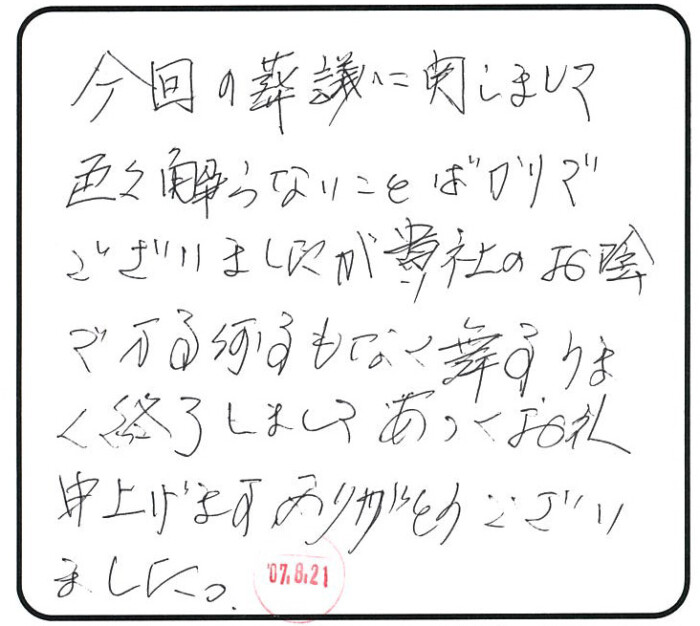 今回の葬議に関しまして
色々解らないことばかりで
ございましたが貴社のお陰
で万る何るもなく無事うま
く終了しましてあつくお礼
申上げますありがとうござい
ました。
'07.8.21